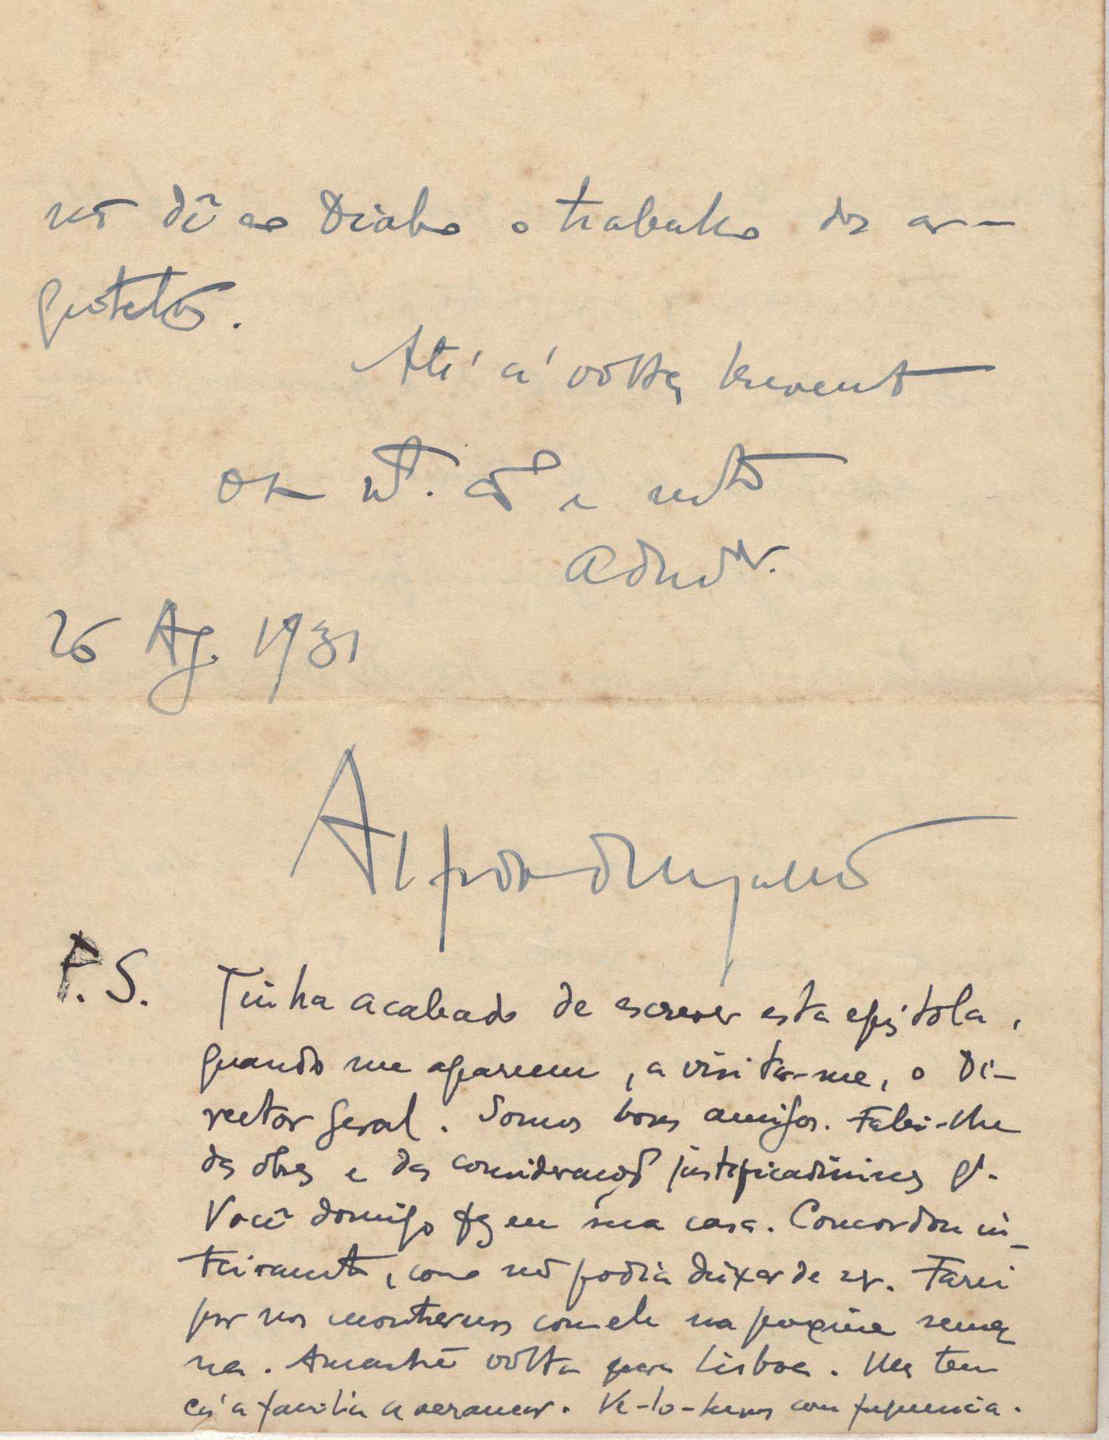 não dê ao Diabo o trabalho dos ar-
quitetos.
Até á volta brevemente
mto
admor.
26 Ag. 1931
P.S. Tinha acabado de escrever esta epistola,
quando me apareceu, a visitar-me, o Di-
rector Geral. Somos bons amigos. Falei-lhe
das obras e das considerações justificadissimas q.
Você domingo fez em sua casa. Concordou in-
teiramente, como não podia deixar de ser. Farei
por nos encontrarmos com ele na proxima sema
na. Amanhã volta para Lisboa. Mas tem
cá a familia a veranear. Ve-lo-hemos com frequencia.